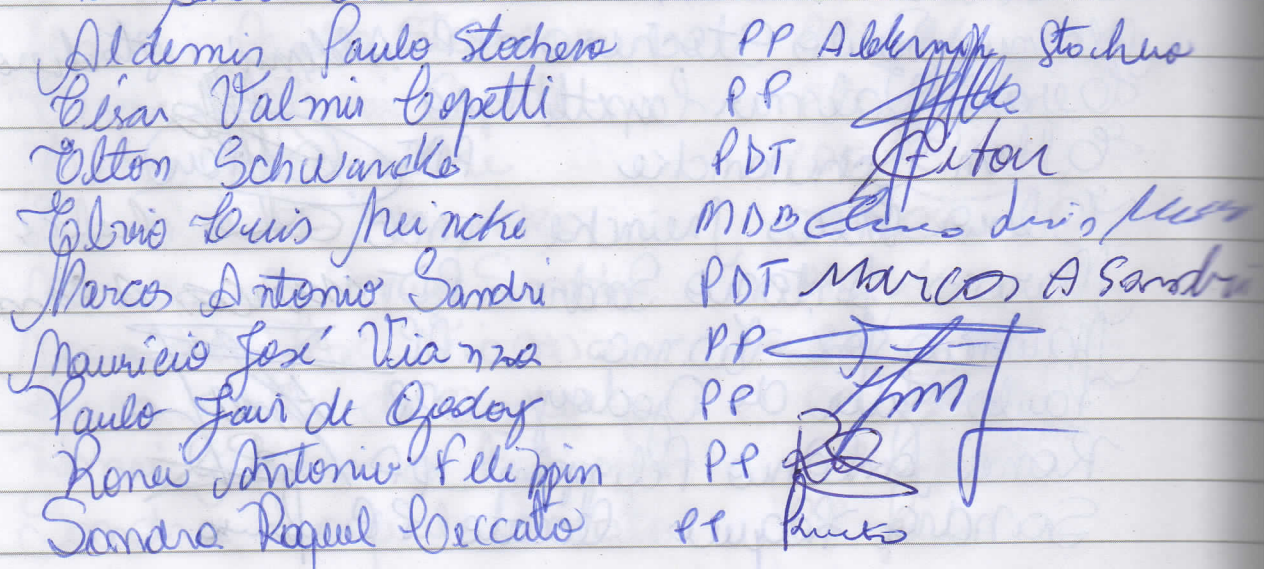 Aldemir Paulo Stochero PP Aldemir P Stochero
César Valmir Copetti PP
Elton Schwancke PDT Elton
Elvio Luis Meincke MDB Elvio Luis
Marcos Antonio Sandri PDT Marcos A Sandri
Maurício José Vianna PP
Paulo Jair de Godoy PP
Ronei Antonio Filippin PP
Sandra Raquel Ceccato PP